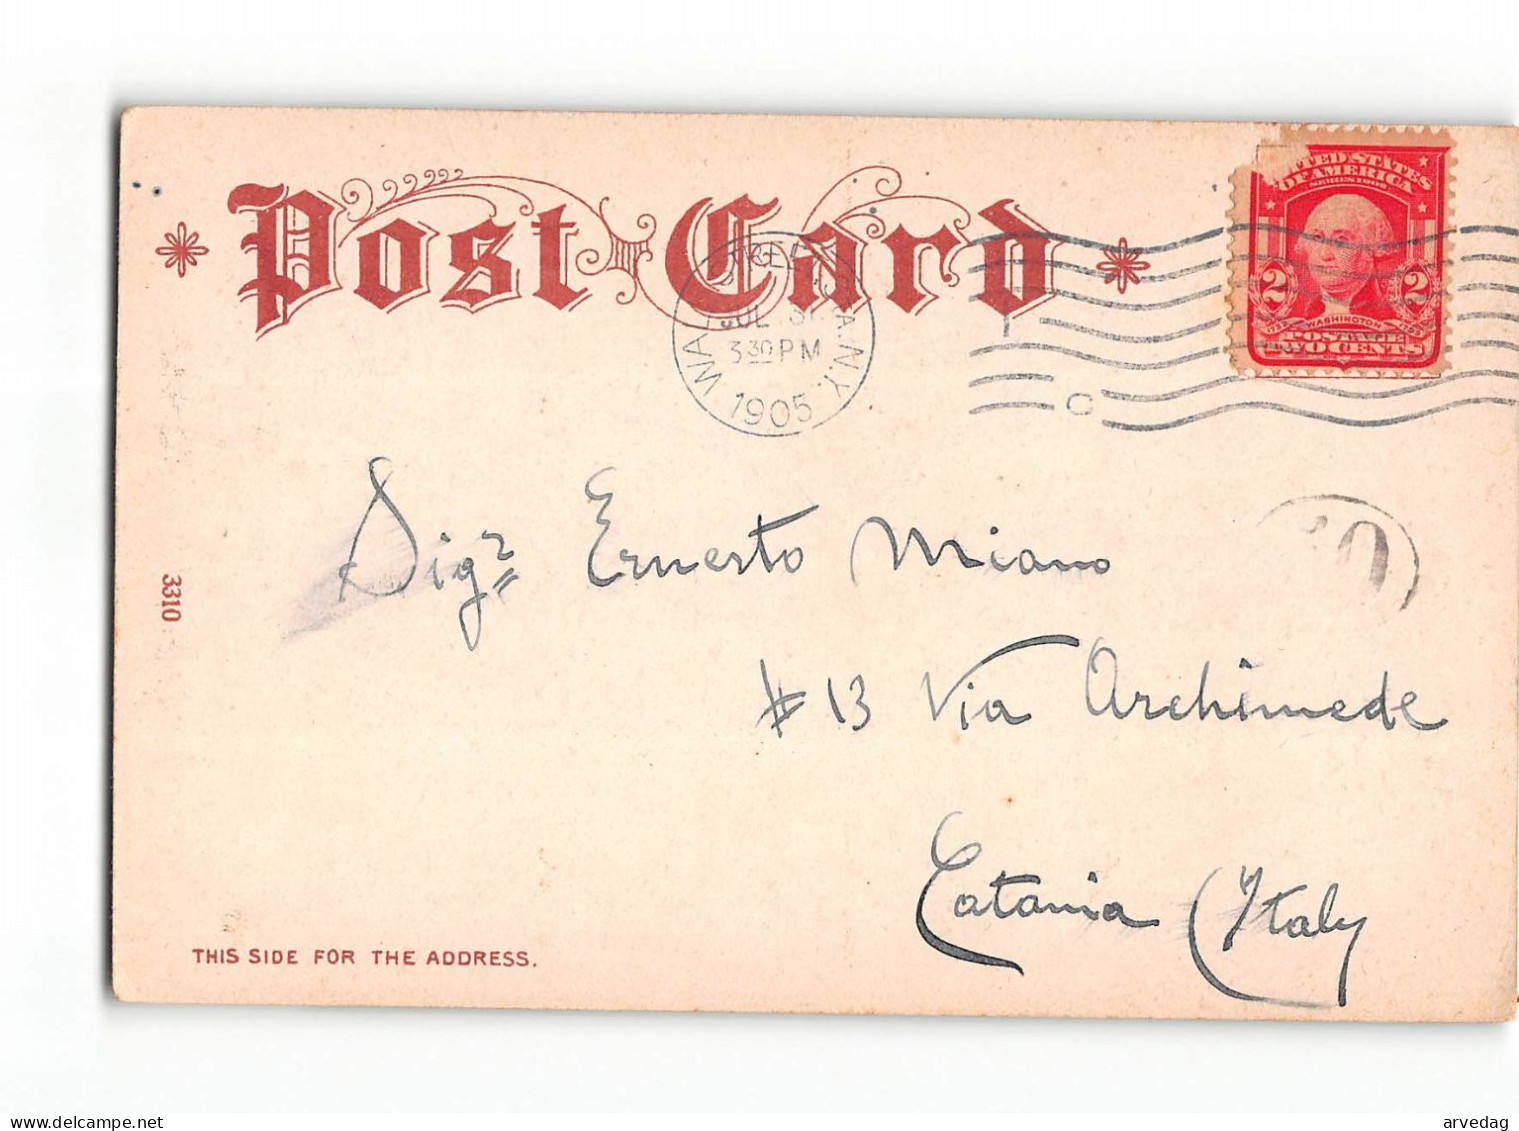 Post Card
UNITED STATES
OF AMERICA
SERIES 1902
2 2
1732 WASHINGTON 1799
POSTAGE
TWO CENTS
WALL STREET STA. N.Y.
JUL 31
3 30 PM
1905
C
Sigr Ernesto Miano
# 13 Via Archimede
Catania Italy
3310
THIS SIDE FOR THE ADDRESS.
arvedag